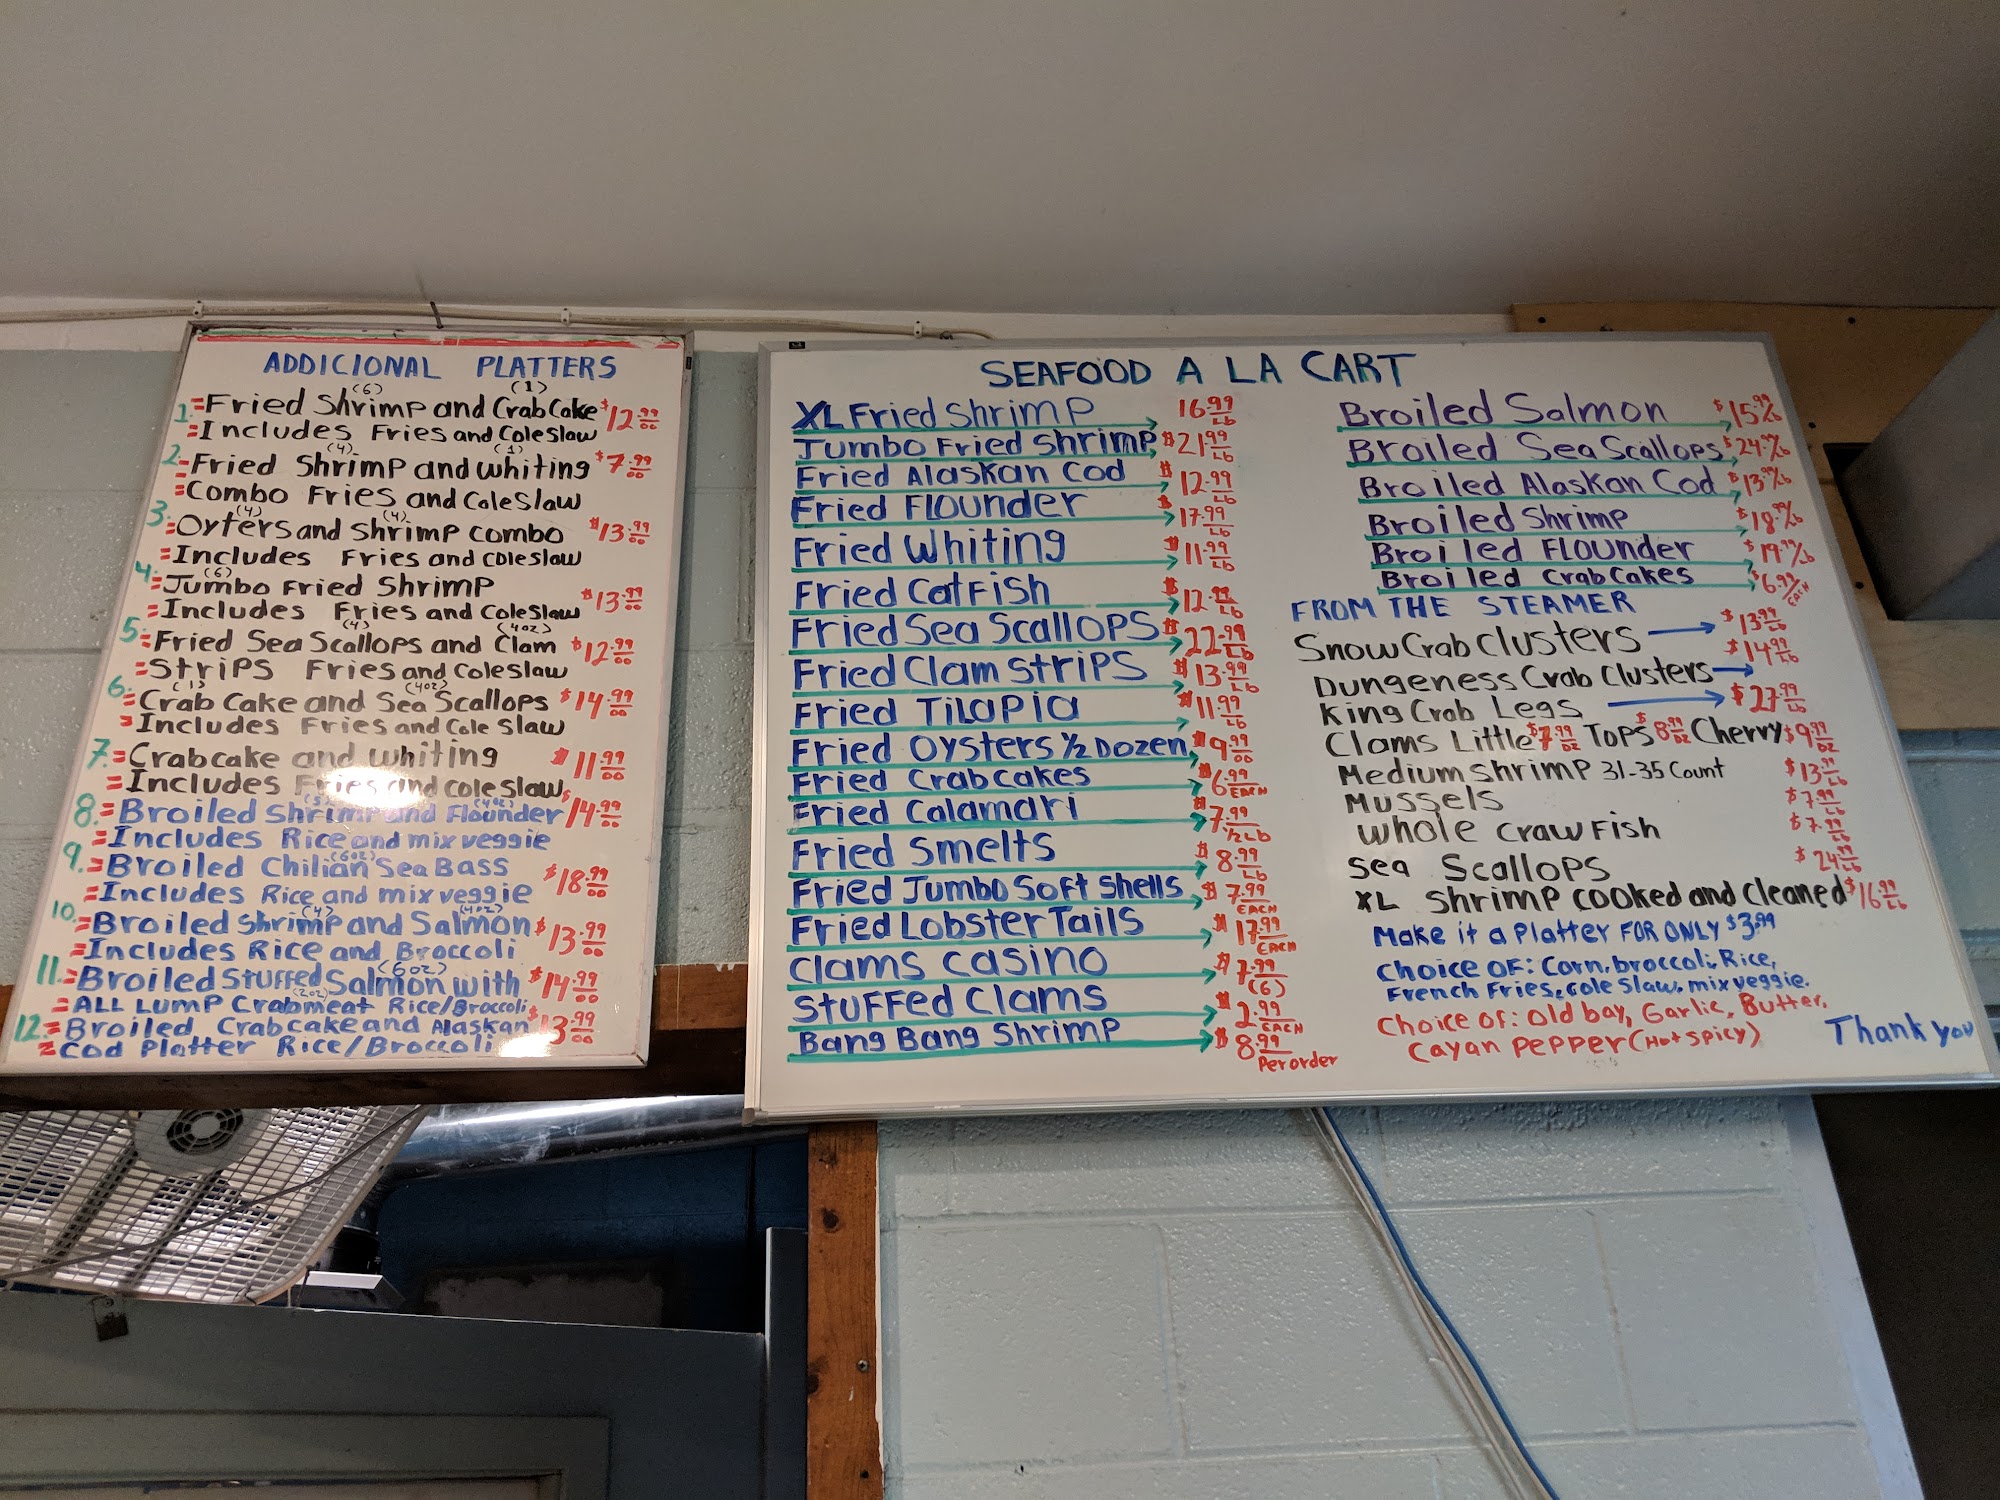 ADDICIONAL PLATTERS
(6) (1)
1.=Fried Shrimp and Crab Cake $12.99/00
=Includes Fries and Coleslaw
(4) (1)
2.=Fried Shrimp and Whiting $7.99/00
=Combo Fries and Coleslaw
(4) (4)
3.=Oyters and Shrimp Combo $13.99/00
=Includes Fries and Coleslaw
(6)
4.=Jumbo Fried Shrimp $13.99/00
=Includes Fries and Coleslaw
(4) (4oz)
5.=Fried Sea Scallops and Clam $12.99/00
=Strips Fries and Coleslaw
(1) (4oz)
6.=Crab Cake and Sea Scallops $14.99/00
=Includes Fries and Cole Slaw
7.=Crabcake and Whiting $11.99/00
=Includes Fries and cole slaw
(5) (4oz)
8.=Broiled Shrimp and Flounder $14.99/00
=Includes Rice and mix veggie
(6oz)
9.=Broiled Chilian Sea Bass $18.99/00
=Includes Rice and mix veggie
(4) (4oz)
10.=Broiled Shrimp and Salmon $13.99/00
=Includes Rice and Broccoli
(6oz)
11.=Broiled Stuffed Salmon with $14.99/00
(2oz)
=ALL LUMP Crabmeat Rice/Broccoli
12.=Broiled Crabcake and Alaskan $13.99/00
=Cod Platter Rice/Broccoli
SEAFOOD A LA CART
XL Fried Shrimp 16.99/Lb
Jumbo Fried Shrimp $21.99/Lb
Fried Alaskan Cod $12.99/Lb
Fried Flounder $17.99/Lb
Fried Whiting $11.99/Lb
Fried CatFish $12.99/Lb
Fried Sea Scallops $22.99/Lb
Fried Clam Strips $13.99/Lb
Fried Tilapia $11.99/Lb
Fried Oysters 1/2 Dozen $9.99/00
Fried Crabcakes $6.99/EACH
Fried Calamari $7.99/1/2 Lb
Fried Smelts $8.99/Lb
Fried Jumbo Soft Shells $7.99/EACH
Fried Lobster Tails $17.99/EACH
Clams Casino $7.99/(6)
Stuffed Clams $2.99/EACH
Bang Bang Shrimp $8.99/Per order
Broiled Salmon $15.99/Lb
Broiled Sea Scallops $24.99/Lb
Broiled Alaskan Cod $13.99/Lb
Broiled Shrimp $18.99/Lb
Broiled Flounder $19.99/Lb
Broiled Crab Cakes $6.99/EACH
FROM THE STEAMER
Snow Crab Clusters $13.99/Lb
Dungeness Crab Clusters $14.99/Lb
King Crab Legs $27.99/Lb
Clams Little $7.99/DZ Tops $8.99/DZ Cherry $9.99/DZ
Medium Shrimp 31-35 Count $13.99/Lb
Mussels $7.99/Lb
Whole Craw Fish $7.99/Lb
Sea Scallops $24.99/Lb
XL Shrimp cooked and cleaned $16.99/Lb
Make it a Platter FOR ONLY $3.99
Choice OF: Corn, broccoli, Rice,
French Fries, cole slaw, mix veggie.
Choice OF: Old bay, Garlic, Butter,
Cayan Pepper (Hot Spicy)
Thank you